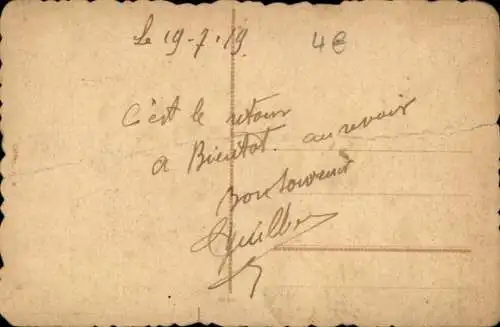 Le 19-7-19
4€
C'est le retour
a Bientot. au revoir
Bon souvenir